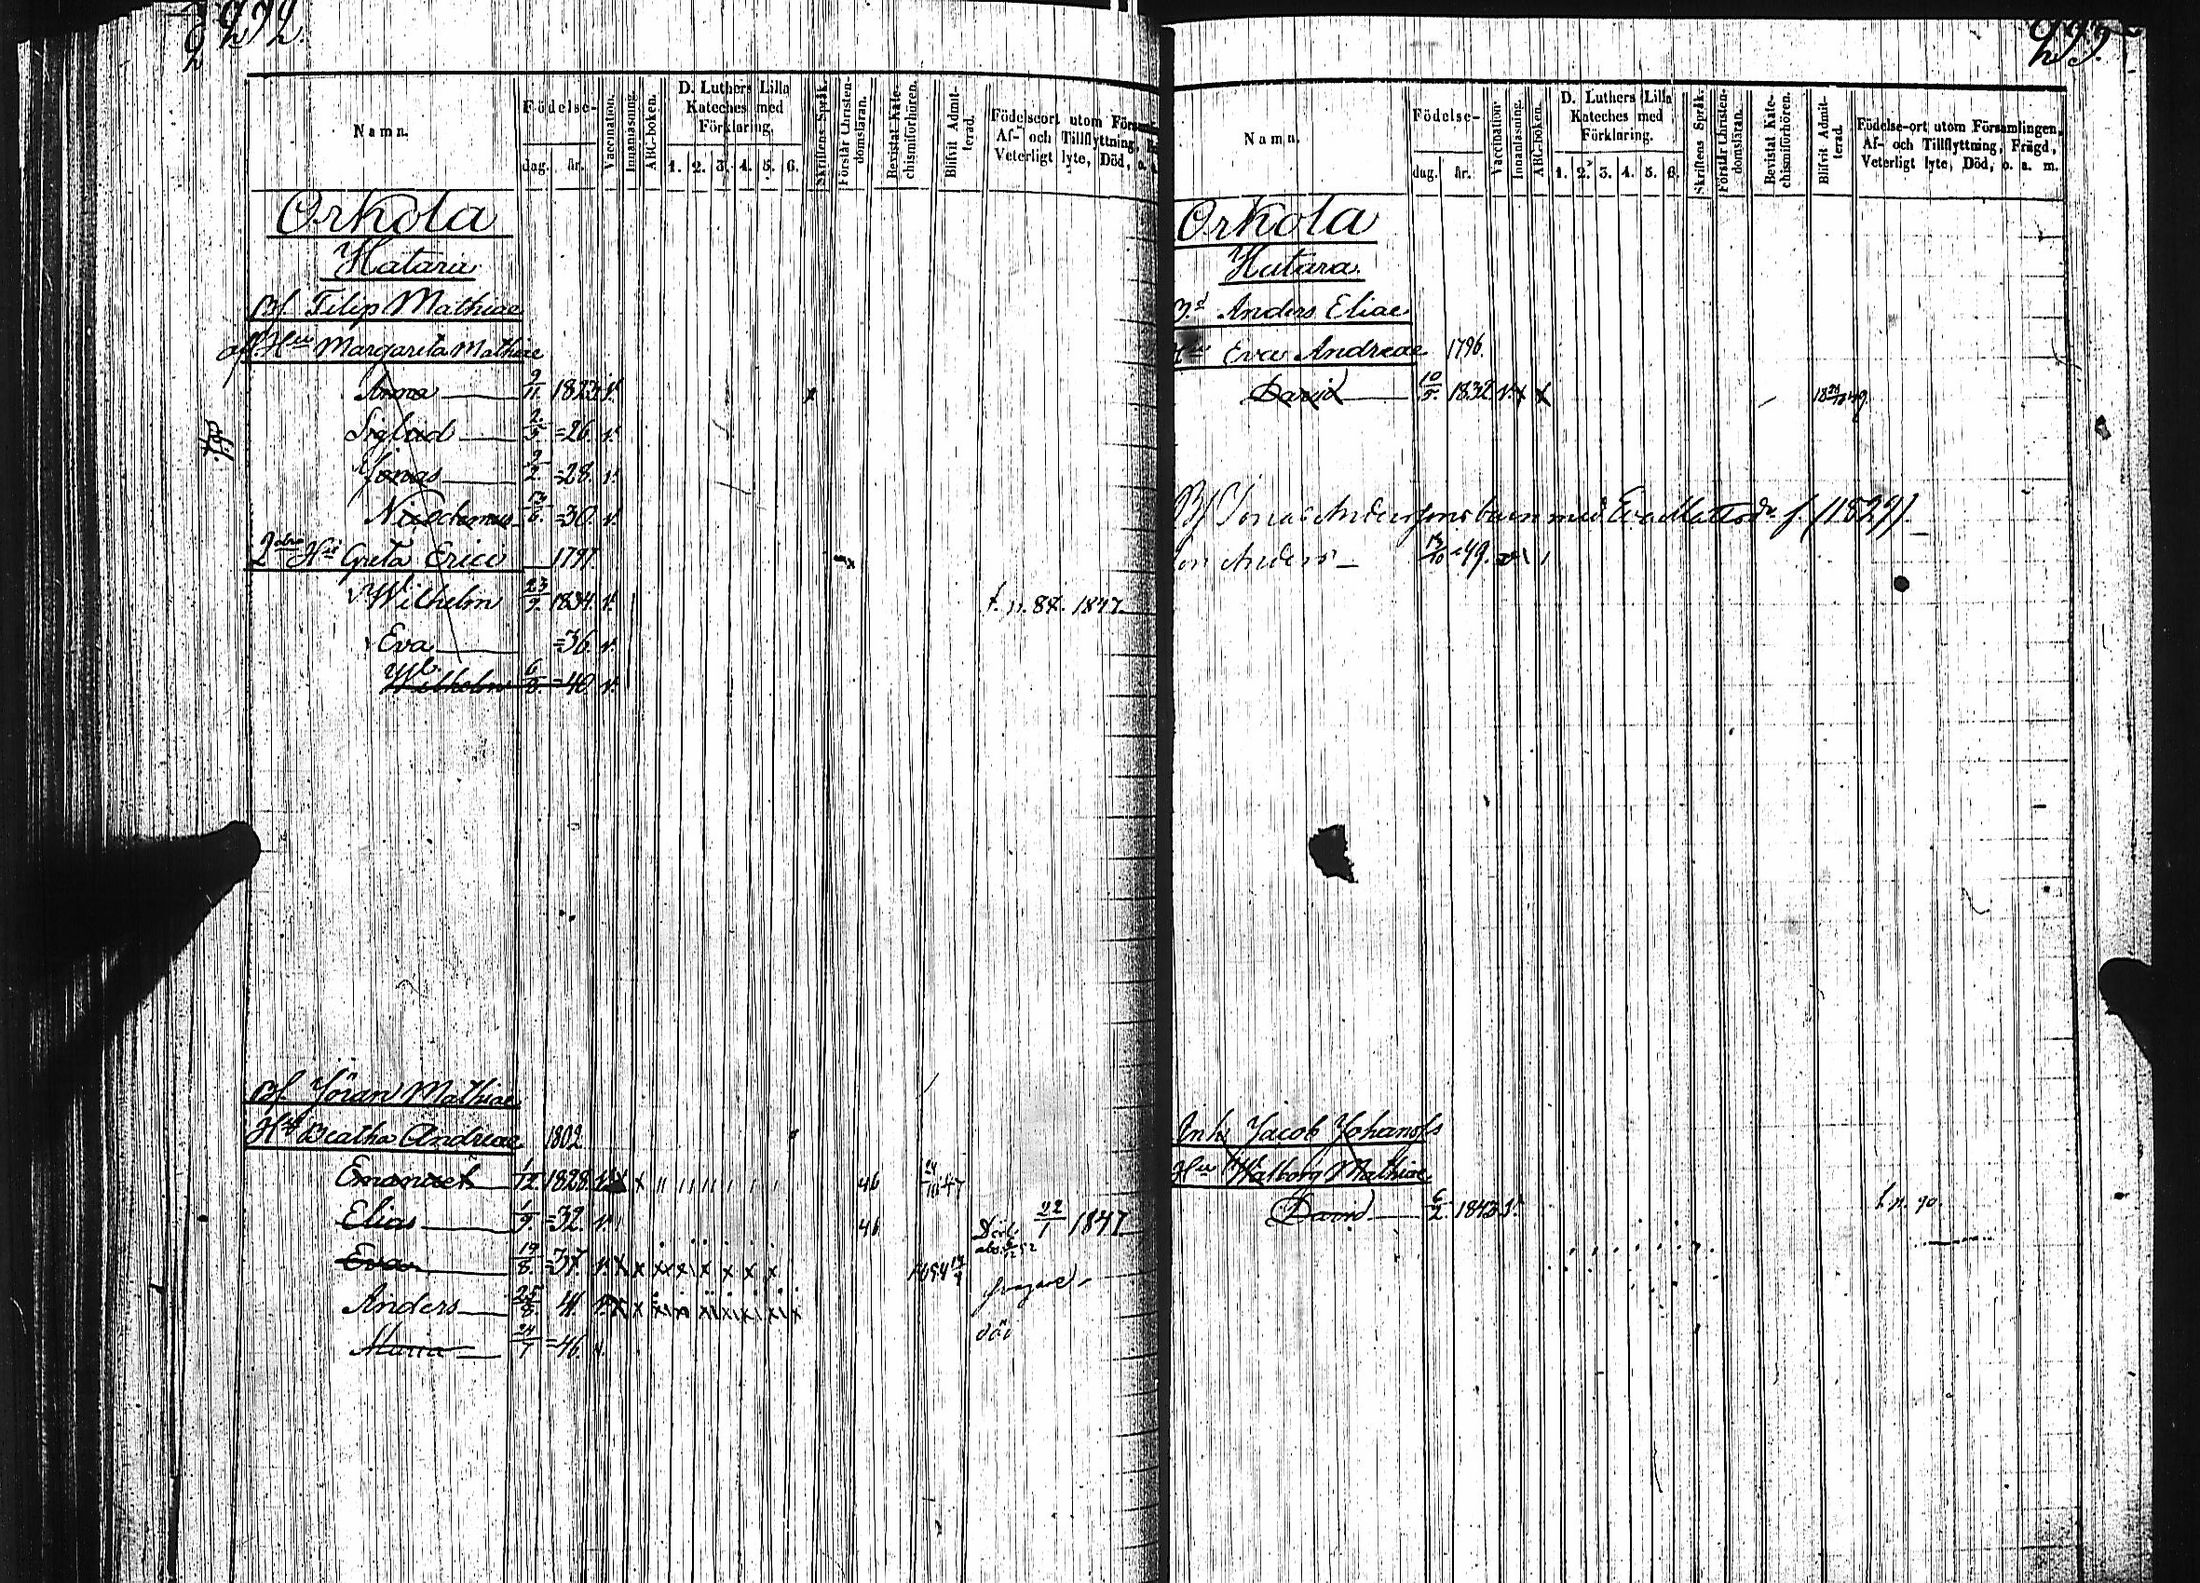 292.
Namn.
Födelse-
dag. år.
Vaccination.
Innanläsning.
ABC-boken.
D. Luthers Lilla
Kateches med
Förklaring.
1. 2. 3. 4. 5. 6.
Skriftens Språk.
Förstår Christen-
domsläran.
Bevistat Kate-
chismiförhören.
Blifvit Admit-
terad.
Födelseort utom
Af- och Tillflyttning,
Veterligt lyte, Död, o.
Orkola
Hatara
Bd. Filip Mathiae
Hru Margareta Mathiae
Anna 9/11 1823 v. x
Sigfrid 2/5 =26. v.
Jonas 9/2 =28. v.
Nicodemus =30. v.
2dra Hru Greta Erici 1797.
Wilhelm 23/9 1834. v. f. n. 88. 1847.
Eva =36. v.
Wilhelm 6/8 =40 v.
Bd. Jöran Mathiae
Hru Beatha Andreae 1802
Emanuel 1/12 1828. v. x 46
Elias 1/9. =32. v. 46 22/1 1847
Eva 19/8. =37. v. x x
Anders 25/8 41. v. x x
Maria 24/7 =46. v. död
293.
Namn.
Födelse-
dag. år.
Vaccination
Innanläsning.
ABC-boken.
D. Luthers Lilla
Kateches med
Förklaring.
1. 2. 3. 4. 5. 6.
Skriftens Språk.
Förstår Christen-
domsläran.
Bevistat Kate-
chismiförhören.
Blifvit Admit-
terad.
Födelse-ort utom Församlingen,
Af- och Tillflyttning, Frägd,
Veterligt lyte, Död, o. a. m.
Orkola
Hatara.
Bd Anders Eliae
Hru Eva Andreae 1796.
David 10/5. 1832 v. x x
Bd Jonas Anderssons barn med Eva Mattsdr f. (1829).
son Anders 13/10 =49.
Inh. Jacob Johanss
Hru Walborg Mathiae
David 6/2 1843 v. f. n. 90.